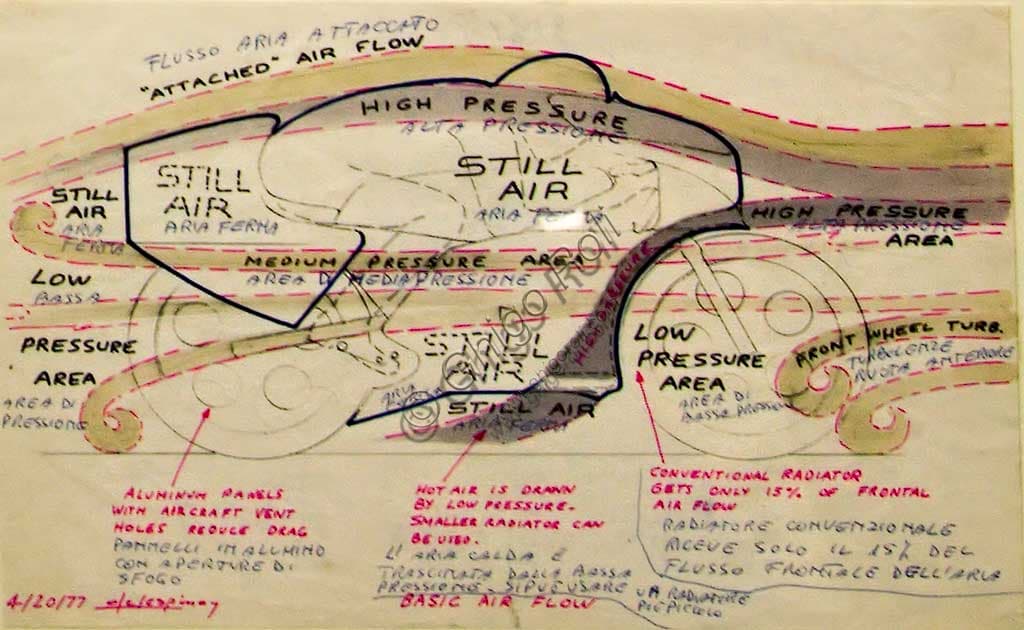 FLUSSO ARIA ATTACCATO
"ATTACHED" AIR FLOW
HIGH PRESSURE
ALTA PRESSIONE
STILL
AIR
ARIA FERMA
STILL
AIR
ARIA FERMA
STILL
AIR
ARIA
FERMA
HIGH PRESSURE
ALTA PRESSIONE
AREA
MEDIUM PRESSURE AREA
AREA DI MEDIA PRESSIONE
LOW
BASSA
PRESSURE
AREA
AREA DI
PRESSIONE
HIGH PRESSURE
STILL
AIR
ARIA
STILL AIR
ARIA FERMA
LOW
PRESSURE
AREA
AREA DI
BASSA PRESSIONE
FRONT WHEEL TURB.
TURBOLENZE
RUOTA ANTERIORE
ALUMINUM PANELS
WITH AIRCRAFT VENT
HOLES REDUCE DRAG
PANNELLI IN ALUMINO
CON APERTURE DI
SFOGO
HOT AIR IS DRAWN
BY LOW PRESSURE.
SMALLER RADIATOR CAN
BE USED.
L'ARIA CALDA È
TRASCINATA DALLA BASSA
PRESSIONE. SI PUO USARE UN RADIATORE
PIÙ PICCOLO
BASIC AIR FLOW
CONVENTIONAL RADIATOR
GETS ONLY 15% OF FRONTAL
AIR FLOW
RADIATORE CONVENZIONALE
RICEVE SOLO IL 15% DEL
FLUSSO FRONTALE DELL'ARIA
4/20/77